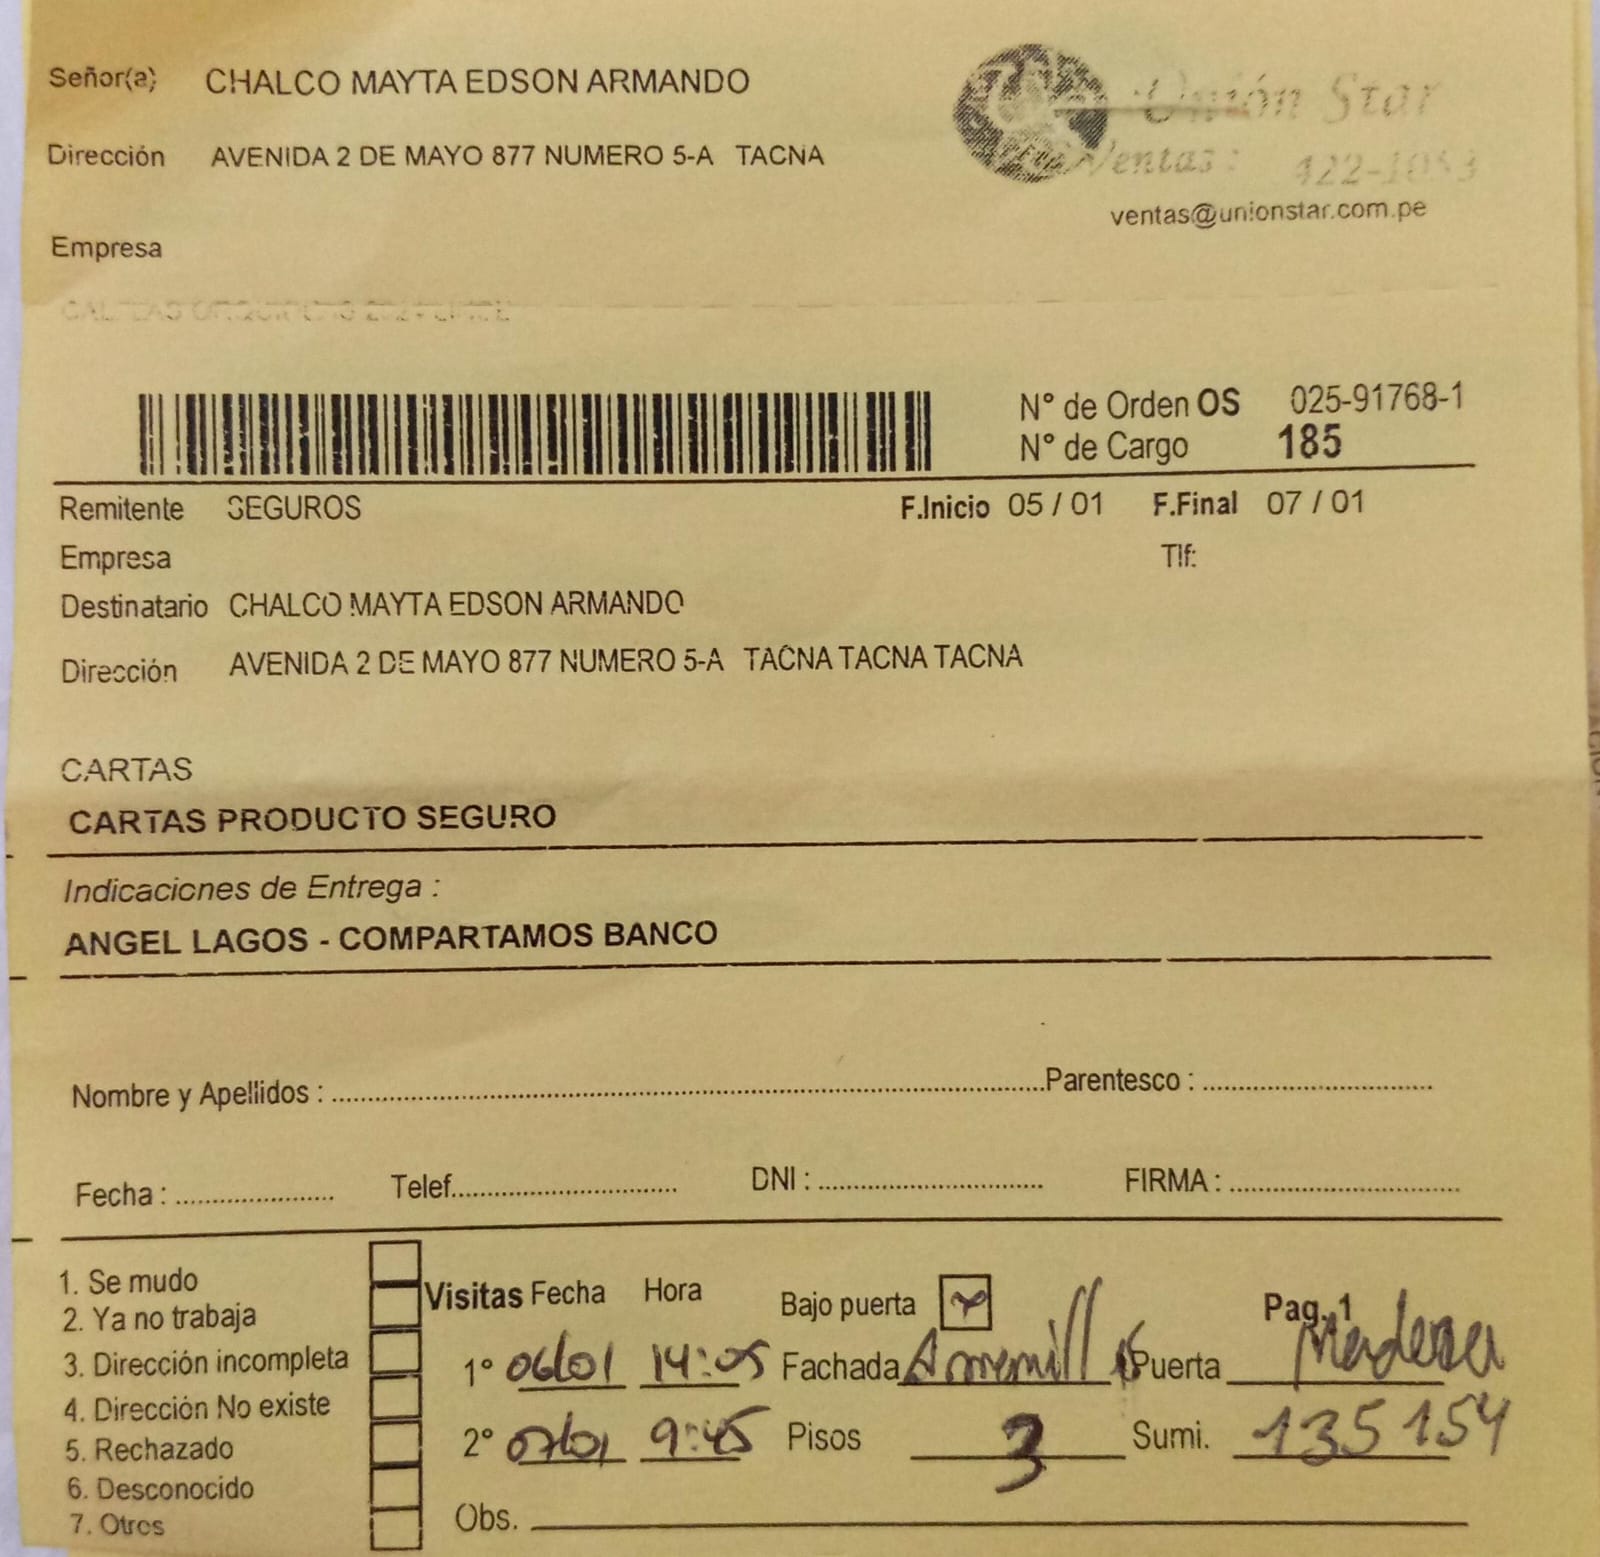 Señor(a) CHALCO MAYTA EDSON ARMANDO
Unión Star
Dirección AVENIDA 2 DE MAYO 877 NUMERO 5-A TACNA
Ventas: 422-1053
ventas@unionstar.com.pe
Empresa
N° de Orden OS 025-91768-1
N° de Cargo 185
Remitente SEGUROS F.Inicio 05 / 01 F.Final 07 / 01
Empresa Tlf:
Destinatario CHALCO MAYTA EDSON ARMANDO
Dirección AVENIDA 2 DE MAYO 877 NUMERO 5-A TACNA TACNA TACNA
CARTAS
CARTAS PRODUCTO SEGURO
Indicaciones de Entrega :
ANGEL LAGOS - COMPARTAMOS BANCO
Nombre y Apellidos : Parentesco :
Fecha : Telef. DNI : FIRMA :
1. Se mudo
2. Ya no trabaja
3. Dirección incompleta
4. Dirección No existe
5. Rechazado
6. Desconocido
7. Otros
Visitas Fecha Hora Bajo puerta Pag. 1
1° 06/01 14:05 Fachada Amarillo Puerta Madera
2° 07/01 9:45 Pisos 3 Sumi. 135154
Obs.